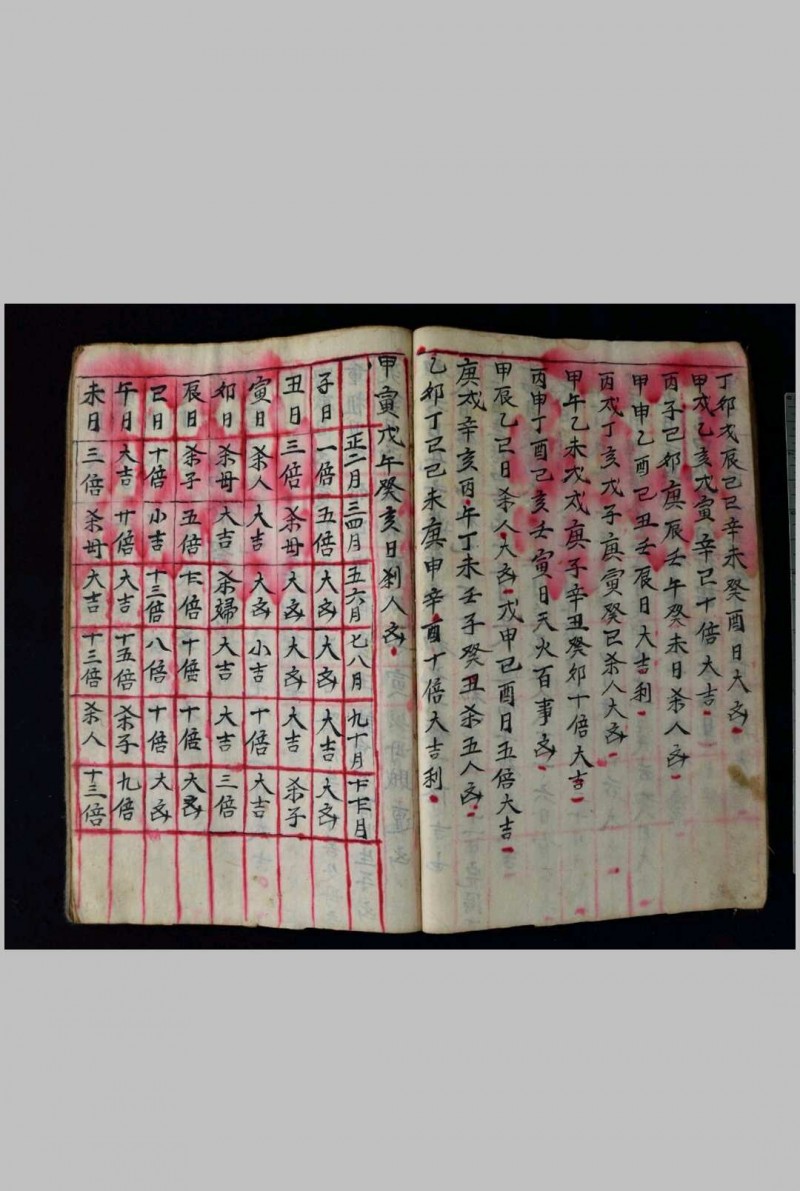 丁卯戊辰己巳辛未癸酉日大凶
甲戌乙亥戊寅辛巳十倍大吉
丙子己卯庚辰壬午癸未日杀人凶
甲申乙酉己丑壬辰日大吉利
丙戌丁亥戊子庚寅癸巳杀人大凶
甲午乙未戊戌庚子辛丑癸卯十倍大吉
丙申丁酉己亥壬寅日天火百事凶
甲辰乙巳日杀人大凶戊申己酉日五倍大吉
庚戌辛亥丙午丁未壬子癸丑杀五人凶
乙卯丁巳己未庚申辛酉十倍大吉利
甲寅戊午癸亥日刹人凶
正二月 三四月 五六月 七八月 九十月 十十二月
子日 一倍 五倍 大凶 大凶 大吉 大凶
丑日 三倍 杀母 大凶 大凶 大吉 杀子
寅日 杀人 大吉 大凶 小吉 十倍 大吉
卯日 杀母 大吉 杀婦 大吉 大吉 三倍
辰日 杀子 五倍 十倍 十倍 大凶
巳日 十倍 小吉 十三倍 八倍 十倍 大凶
午日 大吉 廿倍 大吉 十五倍 杀子 九倍
未日 三倍 杀母 大吉 十三倍 杀人 十三倍